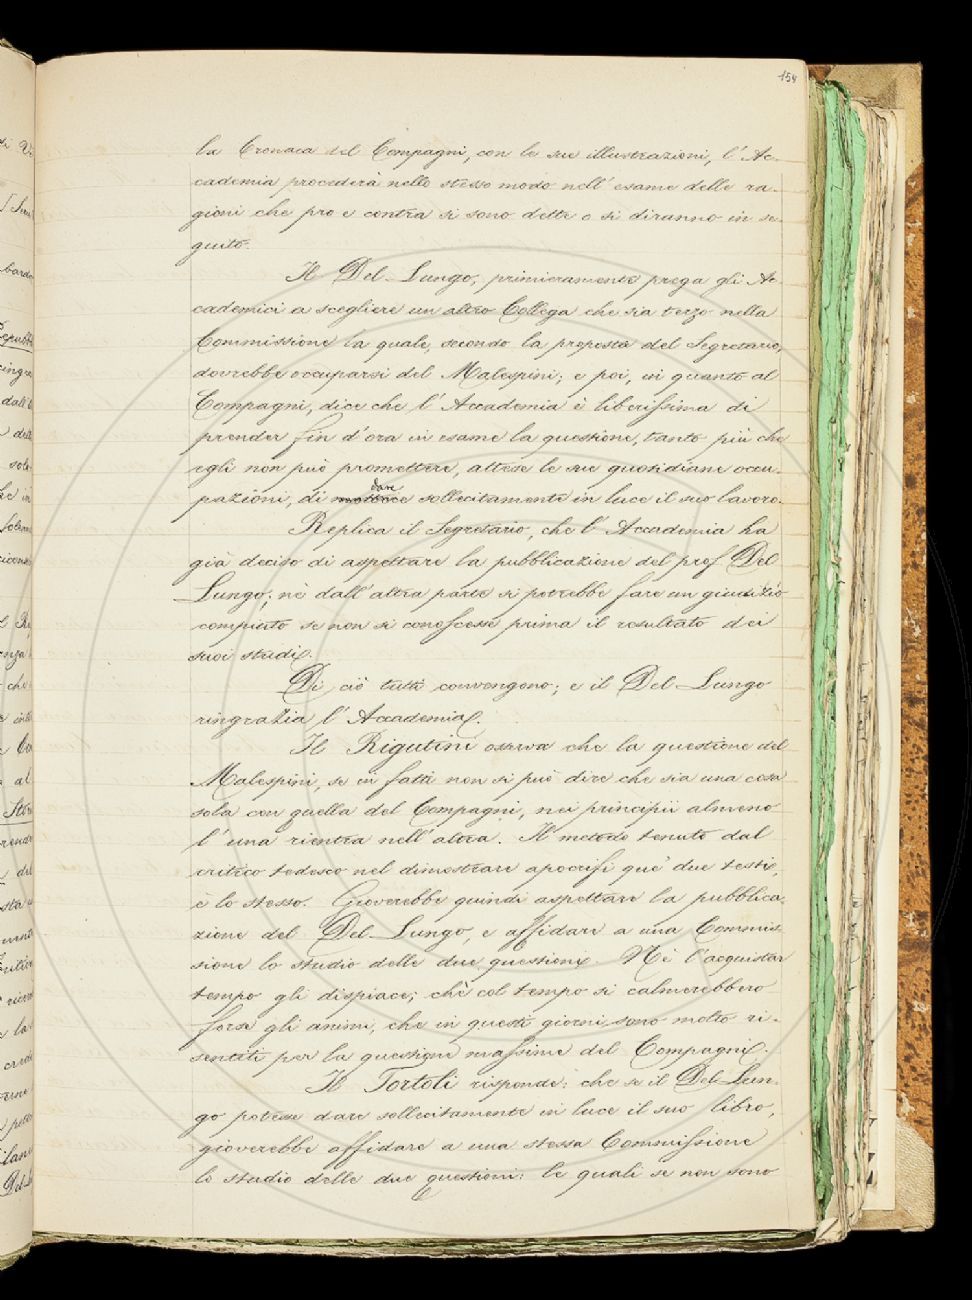 154
la Cronaca del Compagni, con le sue illustrazioni, l'Ac-
cademia procederà nello stesso modo nell'esame delle ra-
gioni che pro e contra si sono dette o si diranno in se-
guito.
Il Del-Lungo, primieramente prega gli Ac-
cademici a scegliere un altro Collega che sia terzo nella
Commissione la quale, secondo la proposta del Segretario,
dovrebbe occuparsi del Malespini; e poi, in quanto al
Compagni, dice che l'Accademia è liberissima di
prender fin d'ora in esame la questione, tanto più che
egli non può promettere, attese le sue quotidiane occu-
pazioni, di dare sollecitamente in luce il suo lavoro.
Replica il Segretario, che l'Accademia ha
già deciso di aspettare la pubblicazione del prof. Del
Lungo; nè dall'altra parte si potrebbe fare un giudizio
compiuto se non si conoscesse prima il resultato dei
suoi studi.
Di ciò tutti convengono; e il Del-Lungo
ringrazia l'Accademia.
Il Rigutini osserva che la questione del
Malespini, se in fatti non si può dire che sia una cosa
sola con quella del Compagni, nei principii almeno
l'una rientra nell'altra. Il metodo tenuto dal
critico tedesco nel dimostrare apocrifi que' due testi,
è lo stesso. Gioverebbe quindi aspettare la pubblica-
zione del Del-Lungo, e affidare a una Commis-
sione lo studio delle due questioni. Nè l'acquistar
tempo gli dispiace; chè col tempo si calmerebbero
forse gli animi, che in questi giorni sono molto ri-
sentiti per la questione massime del Compagni.
Il Tortoli risponde: che se il Del-Lun-
go potesse dare sollecitamente in luce il suo libro,
gioverebbe affidare a una stessa Commissione
lo studio delle due questioni: le quali se non sono